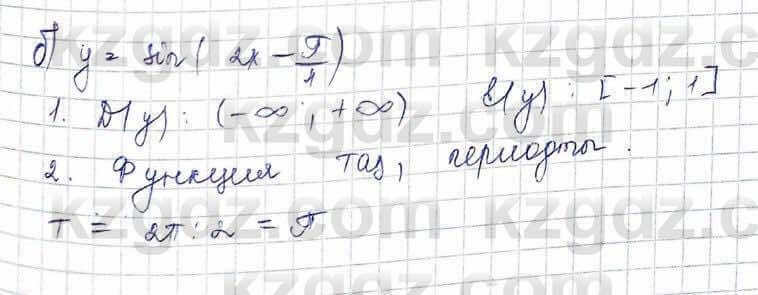 б) y = sin( 2x - π/4 )
1. D(y): (-∞; +∞) E(y): [-1; 1]
2. Функция тақ, периодты.
T = 2π : 2 = π
kzgdz.com